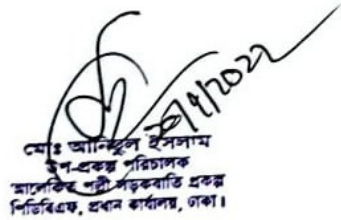 ২০/৭/২০২২
মোঃ আনিছুল ইসলাম
উপ-প্রকল্প পরিচালক
আলোকিত পল্লী সড়কবাতি প্রকল্প
পিডিবিএফ, প্রধান কার্যালয়, ঢাকা।